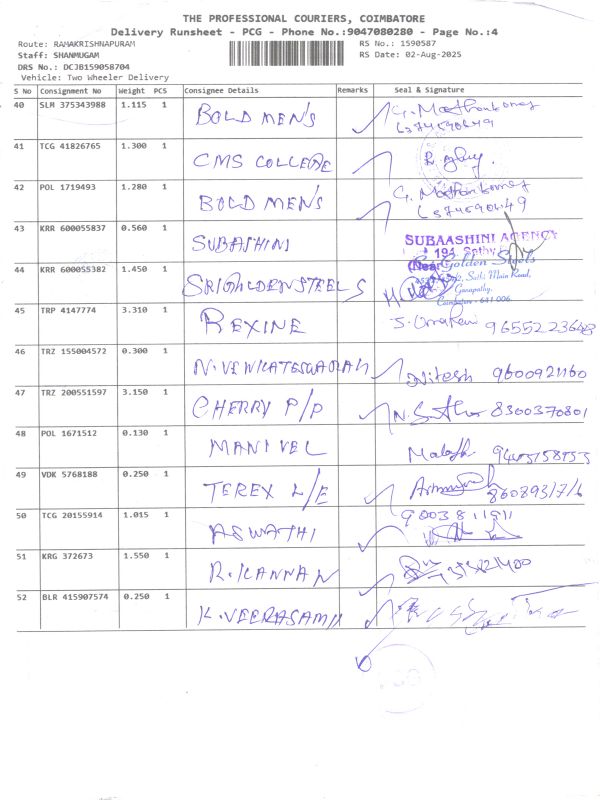 THE PROFESSIONAL COURIERS, COIMBATORE
Delivery Runsheet - PCG - Phone No.:9047080280 - Page No.:4
Route: RAMAKRISHNAPURAM RS No.: 1590587
Staff: SHANMUGAM RS Date: 02-Aug-2025
DRS No.: DCJB159058704
Vehicle: Two Wheeler Delivery
S No Consignment No Weight PCS Consignee Details Remarks Seal & Signature
40 SLM 375343988 1.115 1 BOLD MEN'S
41 TCG 41826765 1.300 1 CMS COLLEGE
42 POL 1719493 1.280 1 BOLD MEN'S
43 KRR 600055837 0.560 1 SUBASHINI SUBAASHINI AGENCY
194 Sathy
(Near Golden Steels
44 KRR 600055382 1.450 1 SRI GOLDEN STEELS Sathi Main Road,
Ganapathy,
Coimbatore - 641 006
45 TRP 4147774 3.310 1 REXINE
46 TRZ 155004572 0.300 1 N. VENKATESWARAN Nitesh 9600921160
47 TRZ 200551597 3.150 1 CHERRY P/P 8300370801
48 POL 1671512 0.130 1 MANIVEL
49 VDK 5768188 0.250 1 TEREX L/E
50 TCG 20155914 1.015 1 ASWATHI 9003811911
51 KRG 372673 1.550 1 R. KANNAN
52 BLR 415907574 0.250 1 K. VEERASAMY